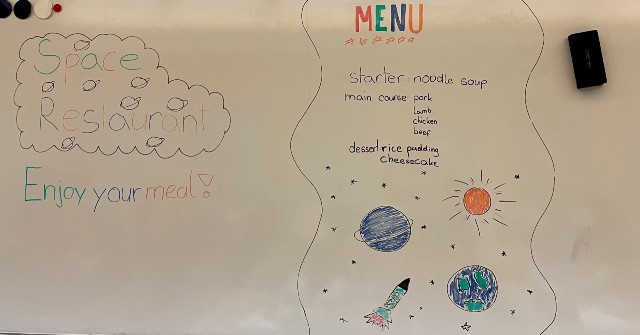 Space
Restaurant
Enjoy your meal!
MENU
starter: noodle soup
main course: pork
lamb
chicken
beef
dessert: rice pudding
cheesecake